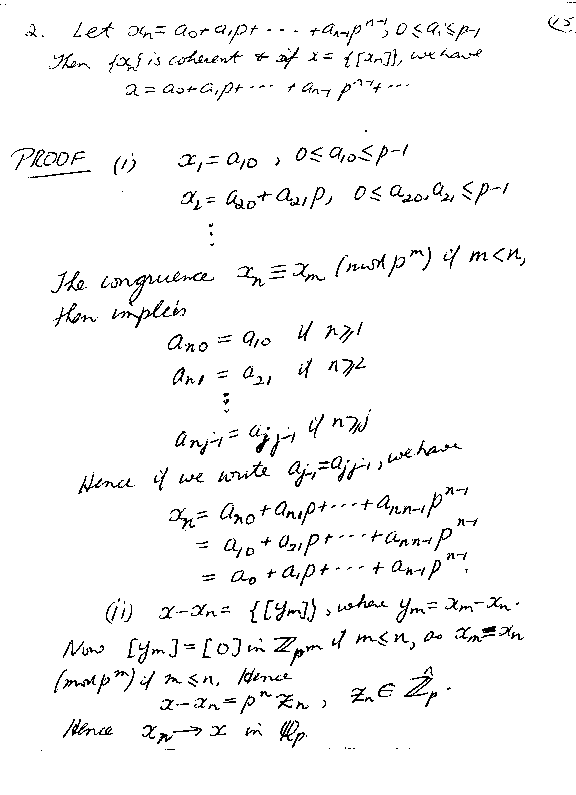 (15)
2. Let xₙ = a₀ + a₁p + ··· + aₙ₋₁pⁿ⁻¹, 0 ≤ aᵢ ≤ p-1
Then {xₙ} is coherent & if x = {[xₙ]}, we have
x = a₀ + a₁p + ··· + aₙ₋₁ pⁿ⁻¹ + ···
PROOF (i) x₁ = a₁₀, 0 ≤ a₁₀ ≤ p-1
x₂ = a₂₀ + a₂₁p, 0 ≤ a₂₀, a₂₁ ≤ p-1
⋮
The congruence xₙ ≡ xₘ (mod pᵐ) if m < n,
then implies
aₙ₀ = a₁₀ if n ≥ 1
aₙ₁ = a₂₁ if n ≥ 2
⋮
aₙⱼ₋₁ = aⱼⱼ₋₁ if n ≥ j
Hence if we write aⱼ₋₁ = aⱼⱼ₋₁, we have
xₙ = aₙ₀ + aₙ₁p + ··· + aₙₙ₋₁pⁿ⁻¹
= a₁₀ + a₂₁p + ··· + aₙₙ₋₁pⁿ⁻¹
= a₀ + a₁p + ··· + aₙ₋₁pⁿ⁻¹.
(ii) x - xₙ = {[yₘ]}, where yₘ = xₘ - xₙ.
Now [yₘ] = [0] in ℤₚᵐ if m ≤ n, as xₘ ≡ xₙ
(mod pᵐ) if m ≤ n. Hence
x - xₙ = pⁿzₙ, zₙ ∈ ℤ̂ₚ.
Hence xₙ → x in ℚₚ.